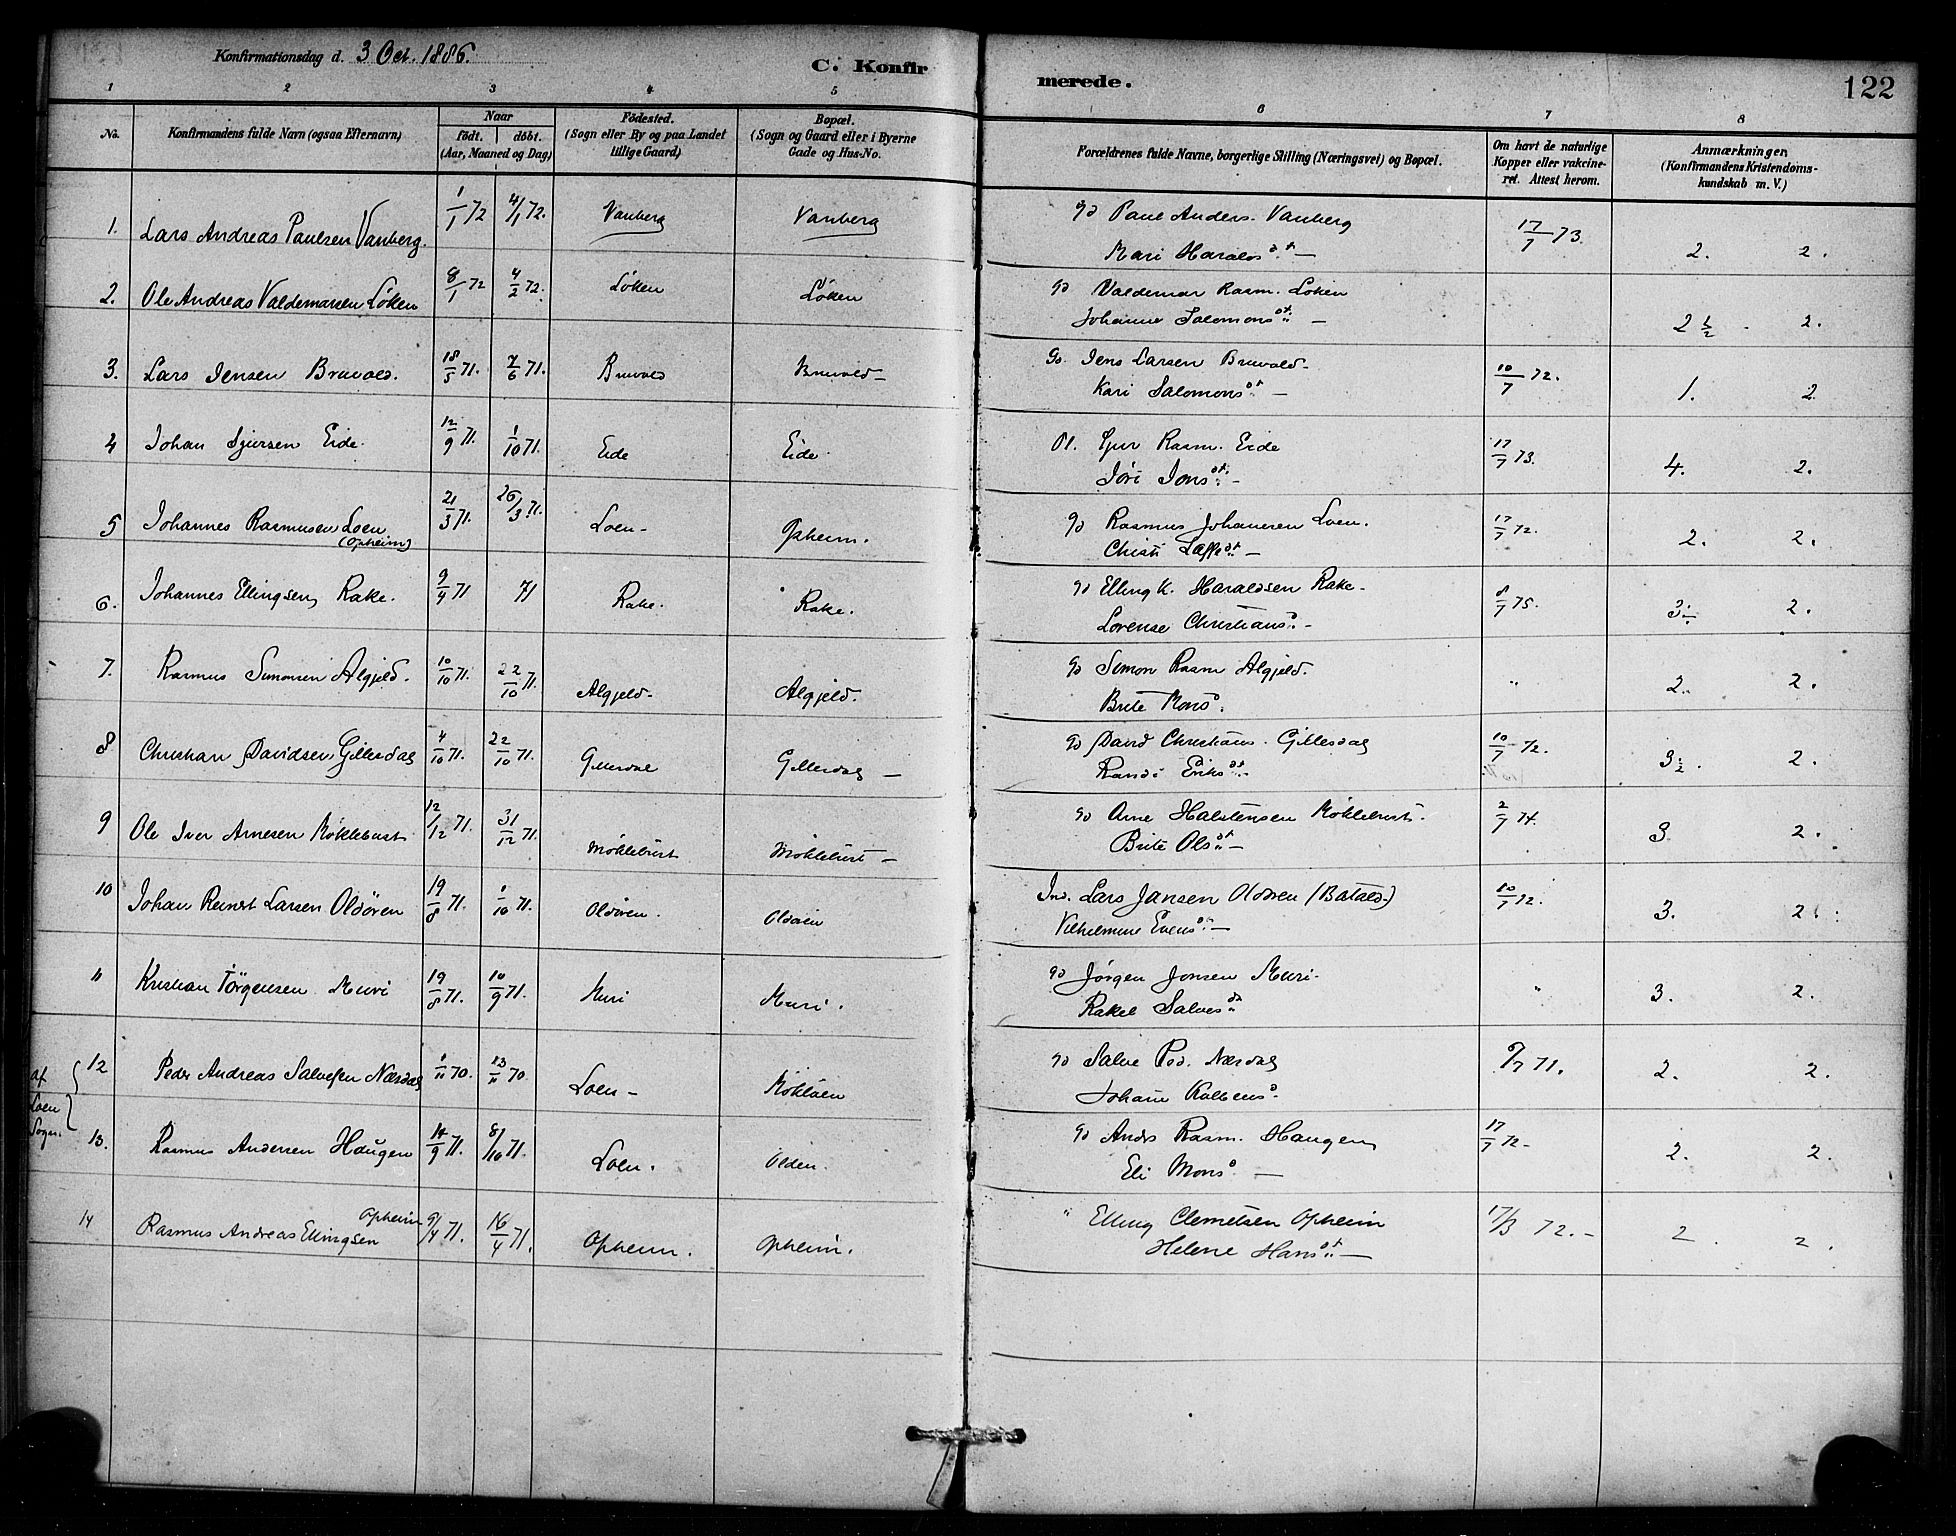 Konfirmationsdag d. 3 Oct. 1886.
C. Konfir
merede.
122
1 2 3 4 5 6 7 8
No.
Konfirmandens fulde Navn (ogsaa Efternavn)
Naar
födt. döbt.
(Aar, Maaned og Dag)
Födested.
(Sogn eller By og paa Landet
tillige Gaard)
Bopæl.
(Sogn og Gaard eller i Byerne
Gade og Hus-No.
Forældrenes fulde Navne, borgerlige Stilling (Næringsvei) og Bopæl.
Om havt de naturlige
Kopper eller vakcine-
ret. Attest herom.
Anmærkninger
(Konfirmandens Kristendoms-
kundskab m. V.)
1. Lars Andreas Paulsen Vanberg. 1/1 72 4/1 72. Vanberg Vanberg gd Paul Anders. Vanberg 17/7 73. 2. 2.
Mari Haralds dt —
2. Ole Andreas Valdemarsen Löken 8/1 72 4/2 72. Löken Löken gd Valdemar Rasm. Löken 2 1/2 . 2.
Johanne Salomons dt —
3. Lars Jensen Bruvold. 18/5 71. 7/6 71. Bruvold Bruvold — gd. Jens Larsen Bruvold. 10/7 72. 1. 2
Kari Salomons dt —
4 Johan Sjursen Eide. 12/9 71. 1/10 71. Eide Eide. Sjur Rasm. Eide 17/7 73. 4. 2.
Jöri Jons dt. —
5 Johannes Rasmusen Loen 21/3 71. 26/3 71. Loen — Opheim. gd Rasmus Johannesen Loen. 17/7 72. 2. 2.
(Opheim)
6. Johannes Ellingsen Rake. 9/4 71 71 Rake. Rake. gd Elling K. Haraldsen Rake — 8/7 75. 2.
Lorense Christians d. —
7. Rasmus Simonsen Algjeld. 10/10 71. 22/10 71. Algjeld. Algjeld. gd Simon Rasm Algjeld. " 2. 2.
Brite Mons d.
8 Christian Davidsen Gillesdal 4/10 71. 22/10 71. Gillesdal Gillesdal — gd David Christians. Gillesdal 10/7 72. 3 1/2. 2.
Randi Eriks dt.
9 Ole Iver Arnesen Möklebust 12/12 71. 31/12 71. Möklebust Möklebust — gd Arne Halstensen Möklebust. 2/7 74. 3. 2.
Brite Ols dt —
10 Johan Reinert Larsen Oldören 19/8 71. 1/10 71. Oldören. Oldören Ind. Lars Jansen Oldören (Batald.) 10/7 72. 3. 2.
Vilhelmine Evens d. —
11 Kristian Törgensen Muri 19/8 71. 10/9 71. Muri Muri. gd Jörgen Jonsen Muri. " 3. 2.
Rakel Salves dt
af
Loen
Sogn.
12 Peder Andreas Salvesen Næsdal 1/11 70. 13/11 70. Loen — Möklöen gd Salve Ped. Næsdal 71. 2. 2.
Johane Kolbens d.
13. Rasmus Andersen Haugen 14/9 71. 8/10 71. Loen. Olden. gd Anders Rasm. Haugen 17/7 72 — 2. 2.
Eli Mons d —
14 Rasmus Andreas Ellingsen Opheim 9/4 71. 16/4 71. Opheim. Opheim. " Elling Clemetsen Opheim 17/3 72. — 2. 2.
Helene Hans dt —